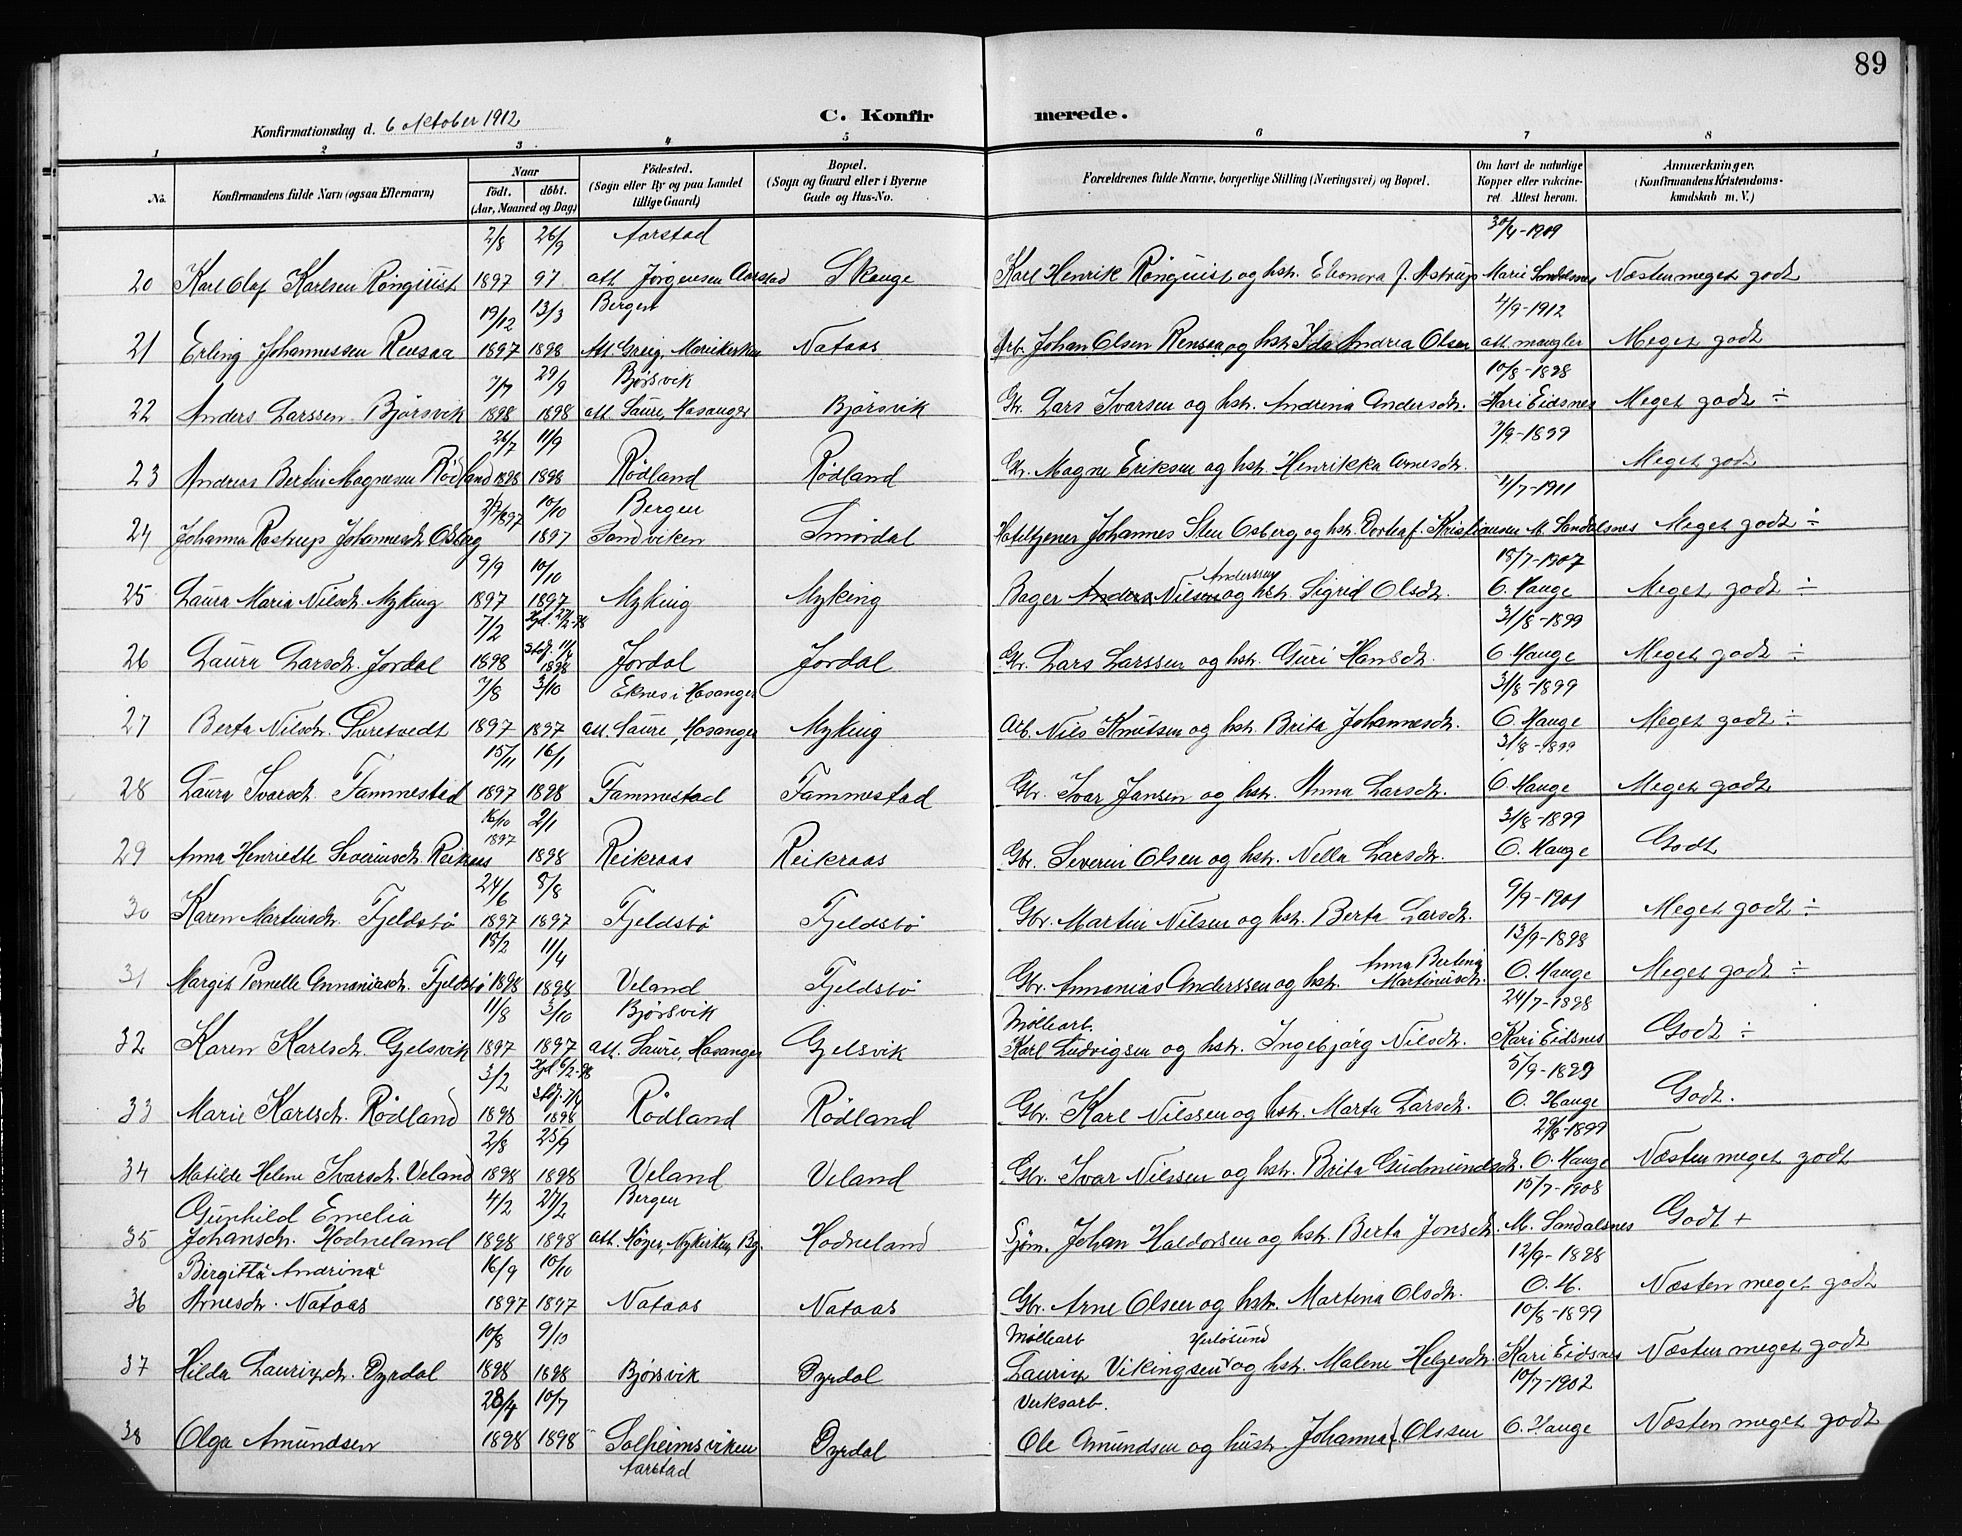 89
Konfirmationsdag d. 6 oktober 1912
C. Konfirmerede.
1 2 3 4 5 6 7 8
No. Konfirmandens fulde Navn (ogsaa Efternavn) Naar født. døbt. (Aar, Maaned og Dag) Födested. (Sogn eller By og paa Landet tillige Gaard) Bopæl. (Sogn og Gaard eller i Byerne Gade og Hus-No. Forældrenes fulde Navne, borgerlige Stilling (Næringsvei) og Bopæl. Om havt de naturlige Kopper eller vakcineret Attest herom. Anmærkninger. (Konfirmandens Kristendomskundskab m. V.)
2/8 26/9 Aarstad 30/4-1909
20 Karl Olaf Karlsen Rönquist 1897 97 att. Jörgensen Aarstad Skauge Karl Henrik Rönquist og hstr. Eleonora f. Astrup Marie Sandalsnes Næsten meget godt
19/12 13/3 Bergen 4/9-1912
21 Erling Johannessen Rensaa 1897 1898 Att. Greig, Mariekirken Nataas Arb. Johan Olsen Rensaa og hstr. Ida Andrea Olsen att. mangler Meget godt
7/7 29/9 Bjørsvik 10/8-1898
22 Anders Larssen Bjørsvik 1898 1898 att. Saure, Hosanger Bjørsvik Gbr. Lars Ivarsen og hstr. Andrina Andersdtr. Kari Eidsnes Meget godt ÷
26/7 11/9 7/9-1899
23 Andreas Bertin Magnesen Rödland 1898 1898 Rödland Rödland Gbr. Magne Eriksen og hstr. Henrikka Arnesdtr. Meget godt
10/10 Bergen 4/7-1911
24 Johanna Rostrup Johannesdtr. Osberg 1897 Sandviken Smørdal Hoteltjener Johannes Sten Osberg og hstr. Dortea f. Kristiansen M. Sandalsnes Meget godt ÷
9/9 10/10 Anderssen 18/7-1907
25 Laura Maria Nilsdtr. Myking 1897 1897 Myking Myking Bager Anders Nilsen og hstr. Sigrid Olsdtr. O. Hauge Meget godt ÷
7/2 Hjd. 27/2-98 31/8-1899
26 Laura Larsdtr. Jordal 1898 stdf. 11/4 1898 Jordal Jordal Gbr. Lars Larssen og hstr. Guri Hansdtr. O. Hauge Meget godt ÷
7/8 3/10 Eknes i Hosanger 31/8-1899
27 Berta Nilsdtr. Turetvedt 1897 1897 att. Saure, Hosanger Myking Arb. Nils Knutsen og hstr. Brita Johannesdtr. O. Hauge Meget godt ÷
15/11 16/1 31/8-1899
28 Laura Ivarsdtr. Fammestad 1897 1898 Fammestad Fammestad Gbr. Ivar Jansen og hstr. Anna Larsdtr. O. Hauge Meget godt
16/10 2/1 31/8-1899
29 Anna Henriette Severinsdtr. Reikraas 1897 1898 Reikraas Reikraas Gbr. Severin Olsen og hstr. Nella Larsdtr. O. Hauge Godt
24/6 8/8 9/9-1901
30 Karen Martinsdtr. Fjeldsbø 1897 1897 Fjeldsbø Fjeldsbø Gbr. Martin Nilsen og hstr. Berta Larsdtr. Meget godt ÷
18/2 11/4 Anna Bertina 13/9-1898
31 Margit Pernelle Annaniasdtr. Fjeldsbø 1898 1898 Veland Fjeldsbø Gbr. Annanias Anderssen og hstr. Martinusdtr. O. Hauge Meget godt ÷
11/8 3/10 Bjørsvik Møllearb. 24/7-1898
32 Karen Karlsdtr. Gjelsvik 1897 1897 att. Saure, Hosanger Gjelsvik Karl Ludvigsen og hstr. Ingebjørg Nilsdtr. Kari Eidsnes Godt ÷
3/2 Hjd. 6/2-98 5/9-1899
33 Marie Karlsdtr. Rödland 1898 1898 Rödland Rödland Gbr. Karl Nilssen og hstr. Marta Larsdtr. O. Hauge Godt.
2/8 25/9 29/8-1899
34 Matilde Helene Ivarsdtr. Veland 1898 1898 Veland Veland Gbr. Ivar Nilssen og hstr. Brita Gudmundsdtr. O. Hauge Næsten meget godt
Gunhild Emelia 4/2 27/2 Bergen 15/7-1908
35 Johansdtr. Hodneland 1898 1898 att. Høyer, Nykirken, Bg. Hodneland Sjøm. Johan Haldorsen og hstr. Berta Jonsdtr. M. Sandalsnes Godt +
Birgitta Andrina 16/9 10/10 12/9-1898
36 Arnesdtr. Nataas 1897 1897 Nataas Nataas Gbr. Arne Olsen og hstr. Martina Olsdtr. O. H. Næsten meget godt
10/8 9/10 Møllearb Herløsund 10/8-1899
37 Hilda Lauritzdtr. Dyrdal 1898 1898 Bjørsvik Dyrdal Lauritz Vikingsen og hstr. Malene Helgesdtr. Kari Eidsnes Næsten meget godt
28/4 10/7 Verksarb. 10/7-1902
38 Olga Amundsen 1898 1898 Solheimsviken Dyrdal Ole Amundsen og hustr. Johanna f. Olssen O. Hauge Næsten meget godt
Aarstad